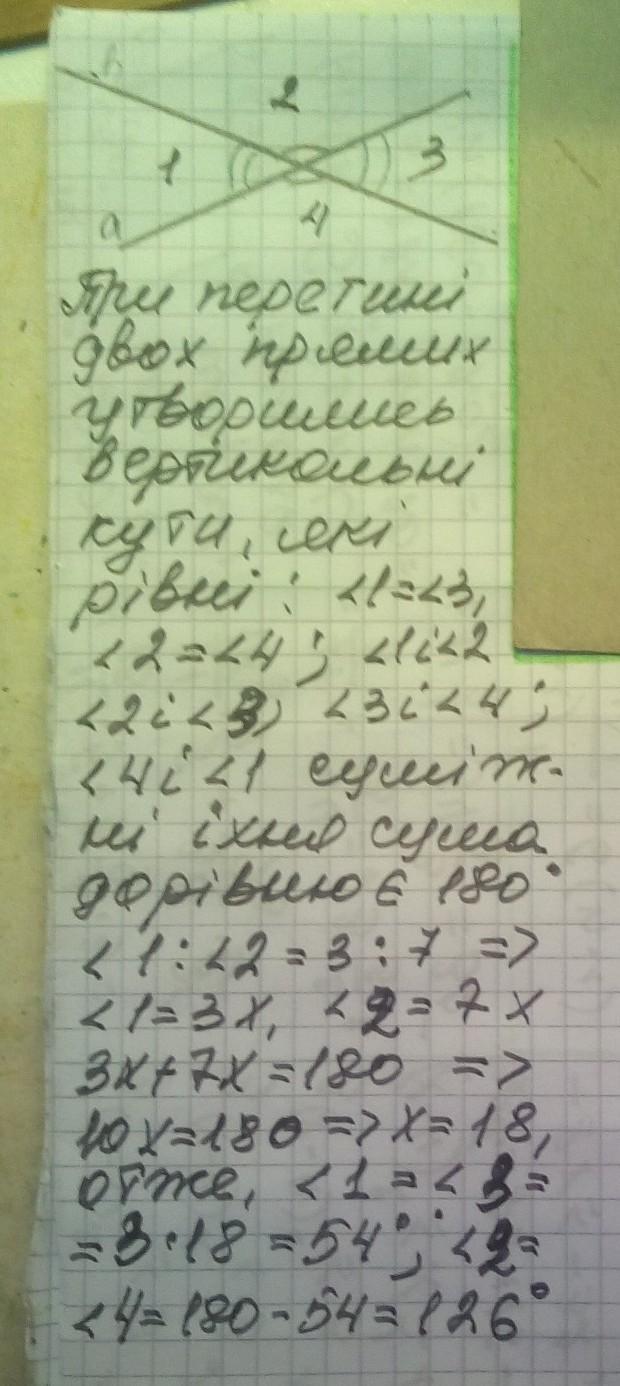 в
2
1
3
а
4
При перетині
двох прямих
утворились
вертикальні
кути, які
рівні: <1=<3,
<2=<4; <1і<2
<2і<3; <3і<4;
<4і<1 суміж-
ні їхня сума
дорівнює 180°
<1:<2=3:7 =>
<1=3x, <2=7x
3x+7x=180 =>
10x=180=>x=18,
отже, <1=<3=
=3·18=54°; <2=
<4=180-54=126°